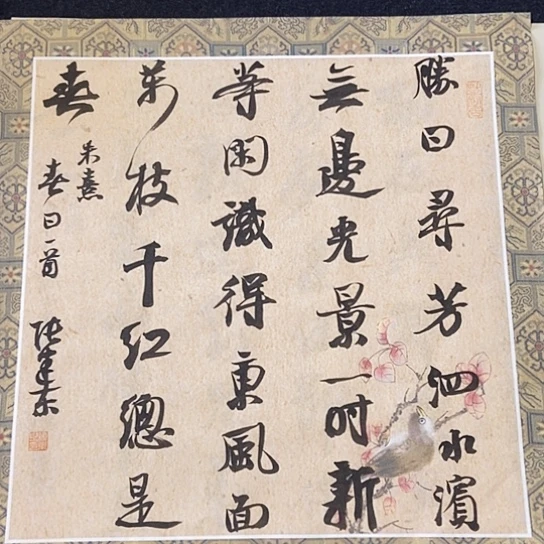 勝日尋芳泗水濱
無邊光景一時新
等閑識得東風面
万枝千紅總是
春
朱熹
春日一首